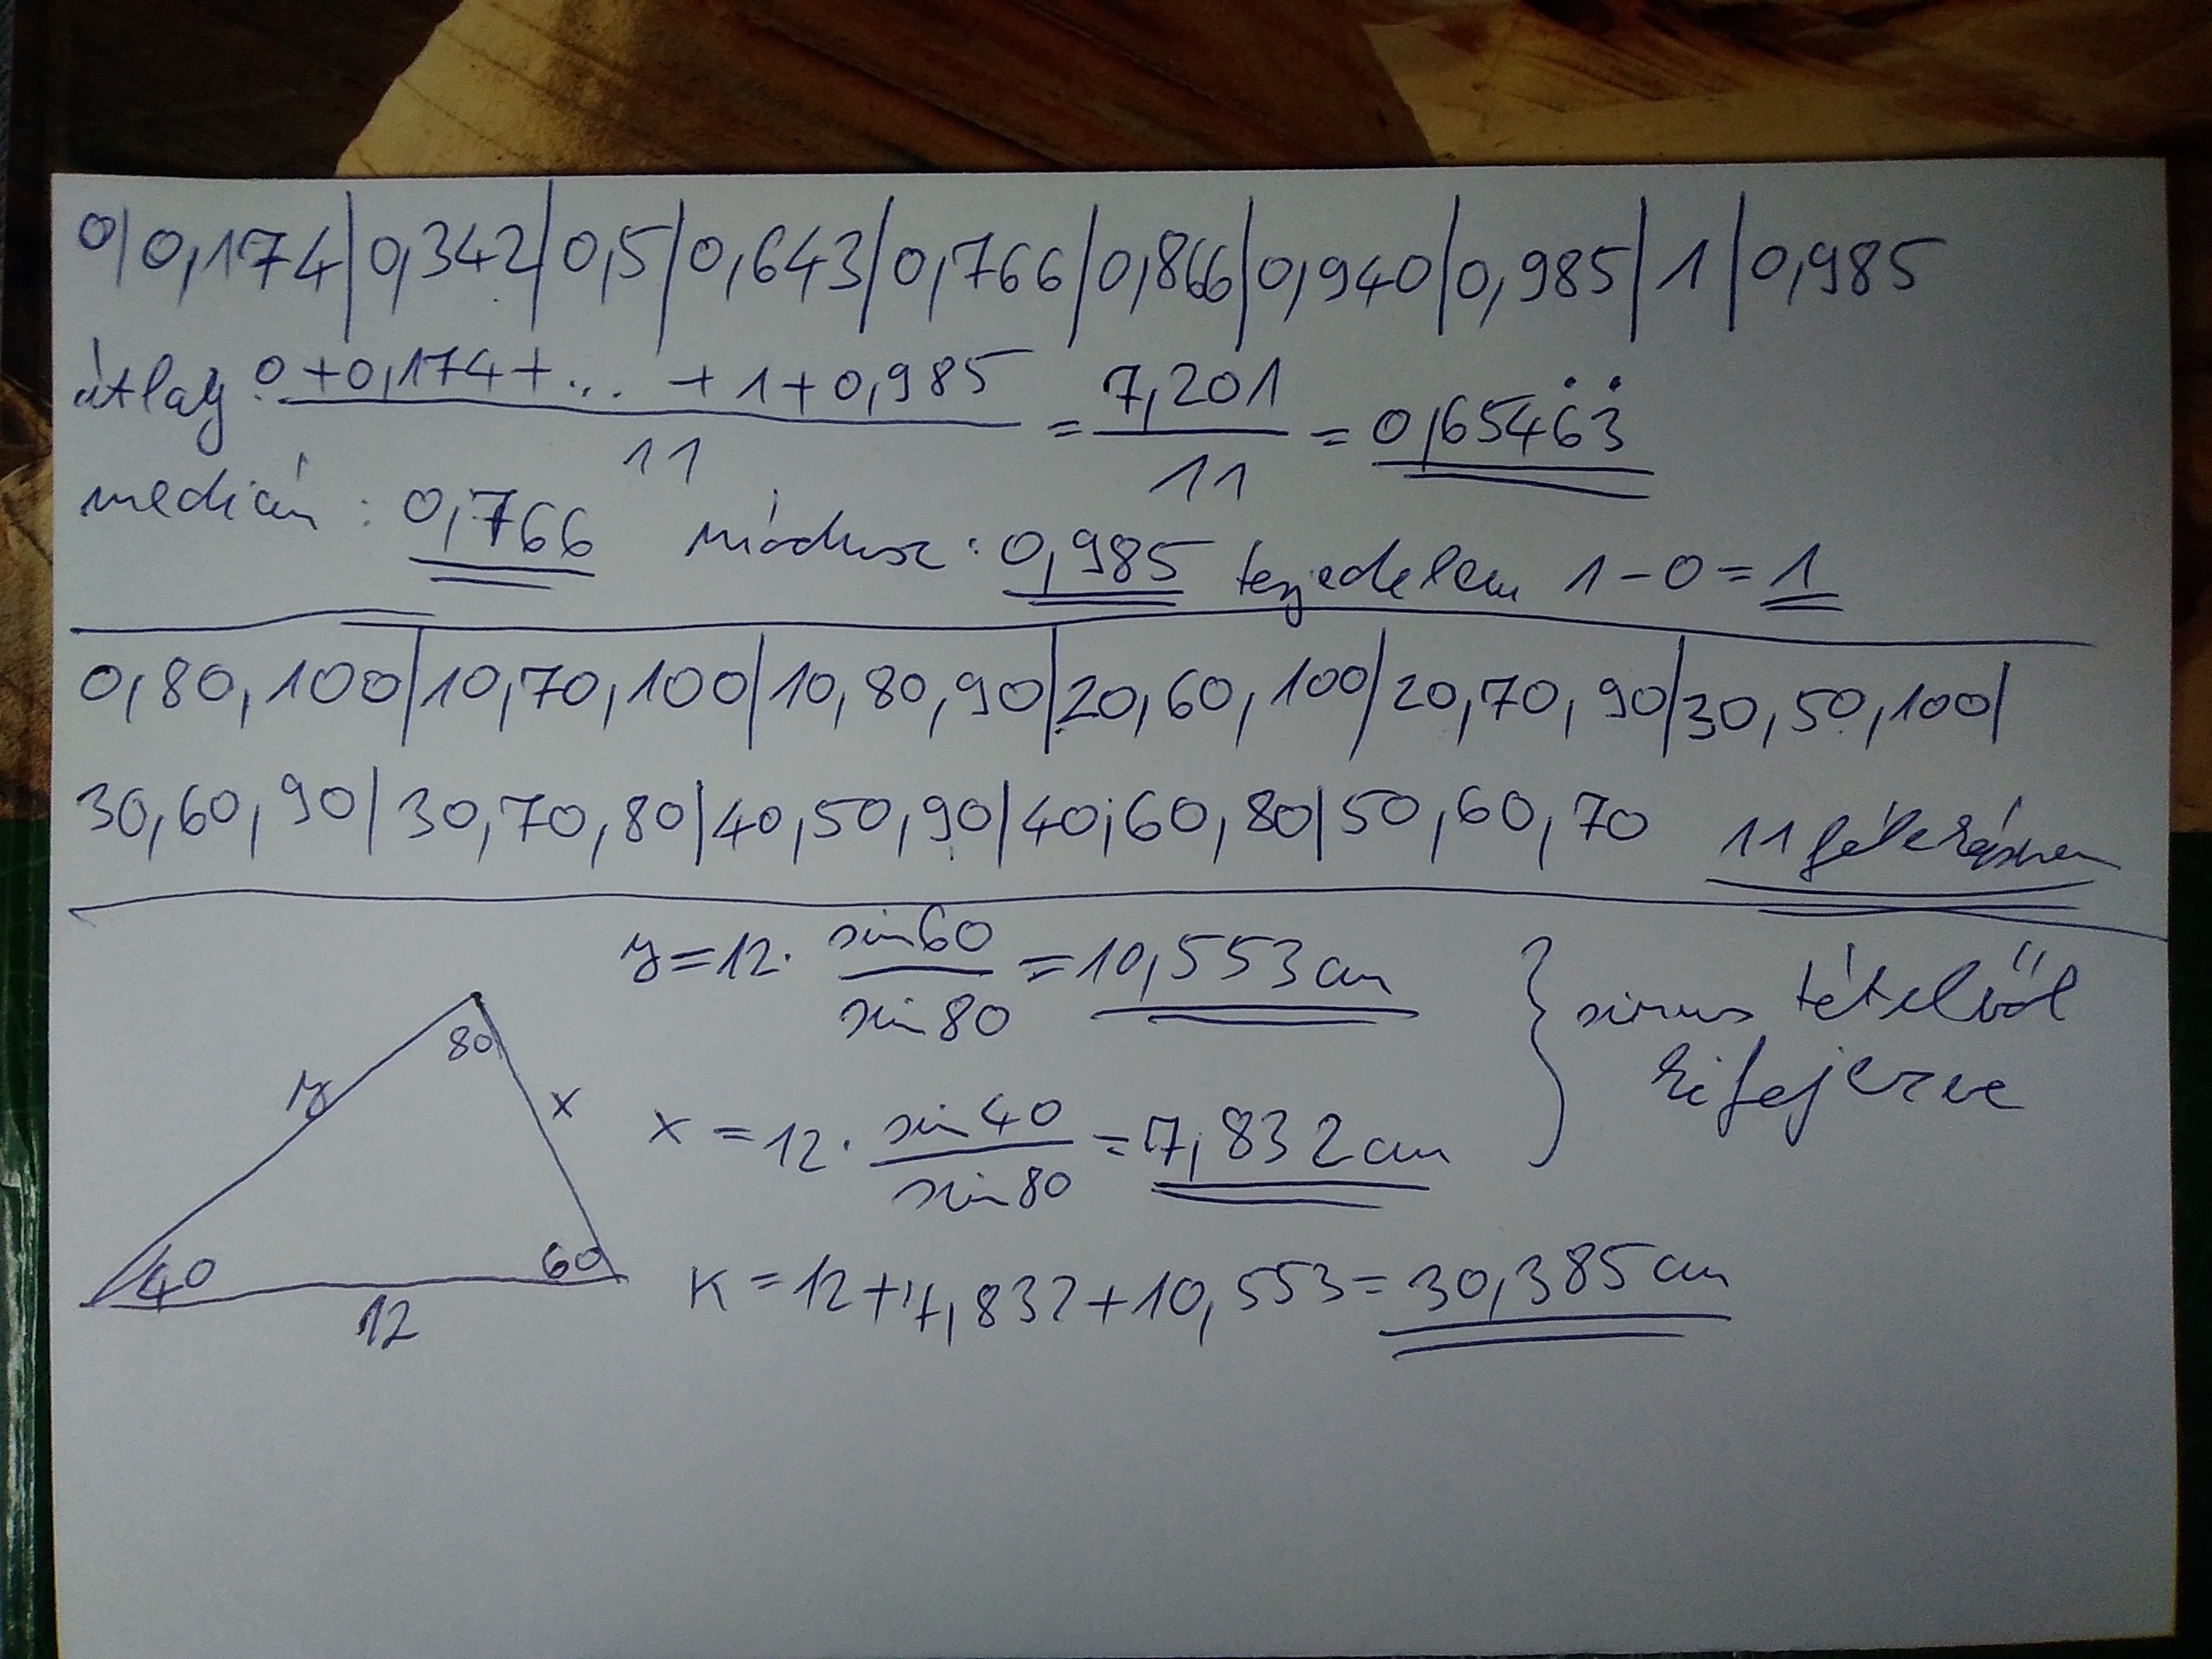 0|0,174|0,342|0,5|0,643|0,766|0,866|0,940|0,985|1|0,985
átlag: (0+0,174+... +1+0,985)/11 = 7,201/11 = 0,6546̇3̇
medián: 0,766 módusz: 0,985 terjedelem 1-0=1
0,80,100|10,70,100|10,80,90|20,60,100|20,70,90|30,50,100|
30,60,90|30,70,80|40,50,90|40;60,80|50,60,70 11féleképpen
y=12·sin60/sin80=10,553cm
x=12·sin40/sin80=7,832cm
} sinus tételből
kifejezve
80
y
x
40
60
12
K=12+7,832+10,553=30,385cm